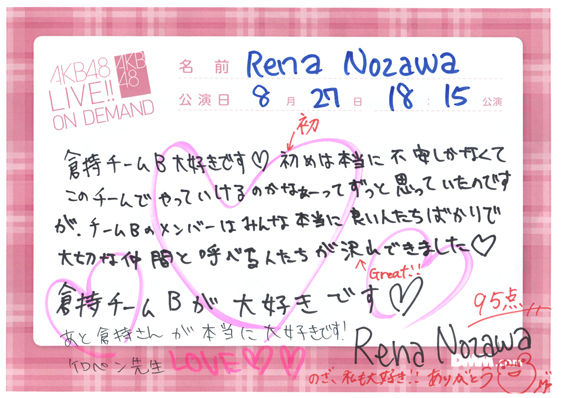 AKB48
LIVE!!
ON DEMAND
AKB
48
名前 Rena Nozawa
公演日 8月27日 18:15公演
初
倉持チームB大好きです♡ 初めは本当に不安しかなくて
このチームでやっていけるのかなぁーってずっと思っていたのです
が、チームBのメンバーはみんな本当に良い人たちばかりで
大切な仲間と呼べる人たちが沢山できました♡
Great!!
倉持チームBが大好きです♡
95点!!
あと倉持さんが本当に大好きです!
Rena Nozawa
ケロペン先生 LOVE♡♡
.com
のぎ、私も大好き!! ありがとう